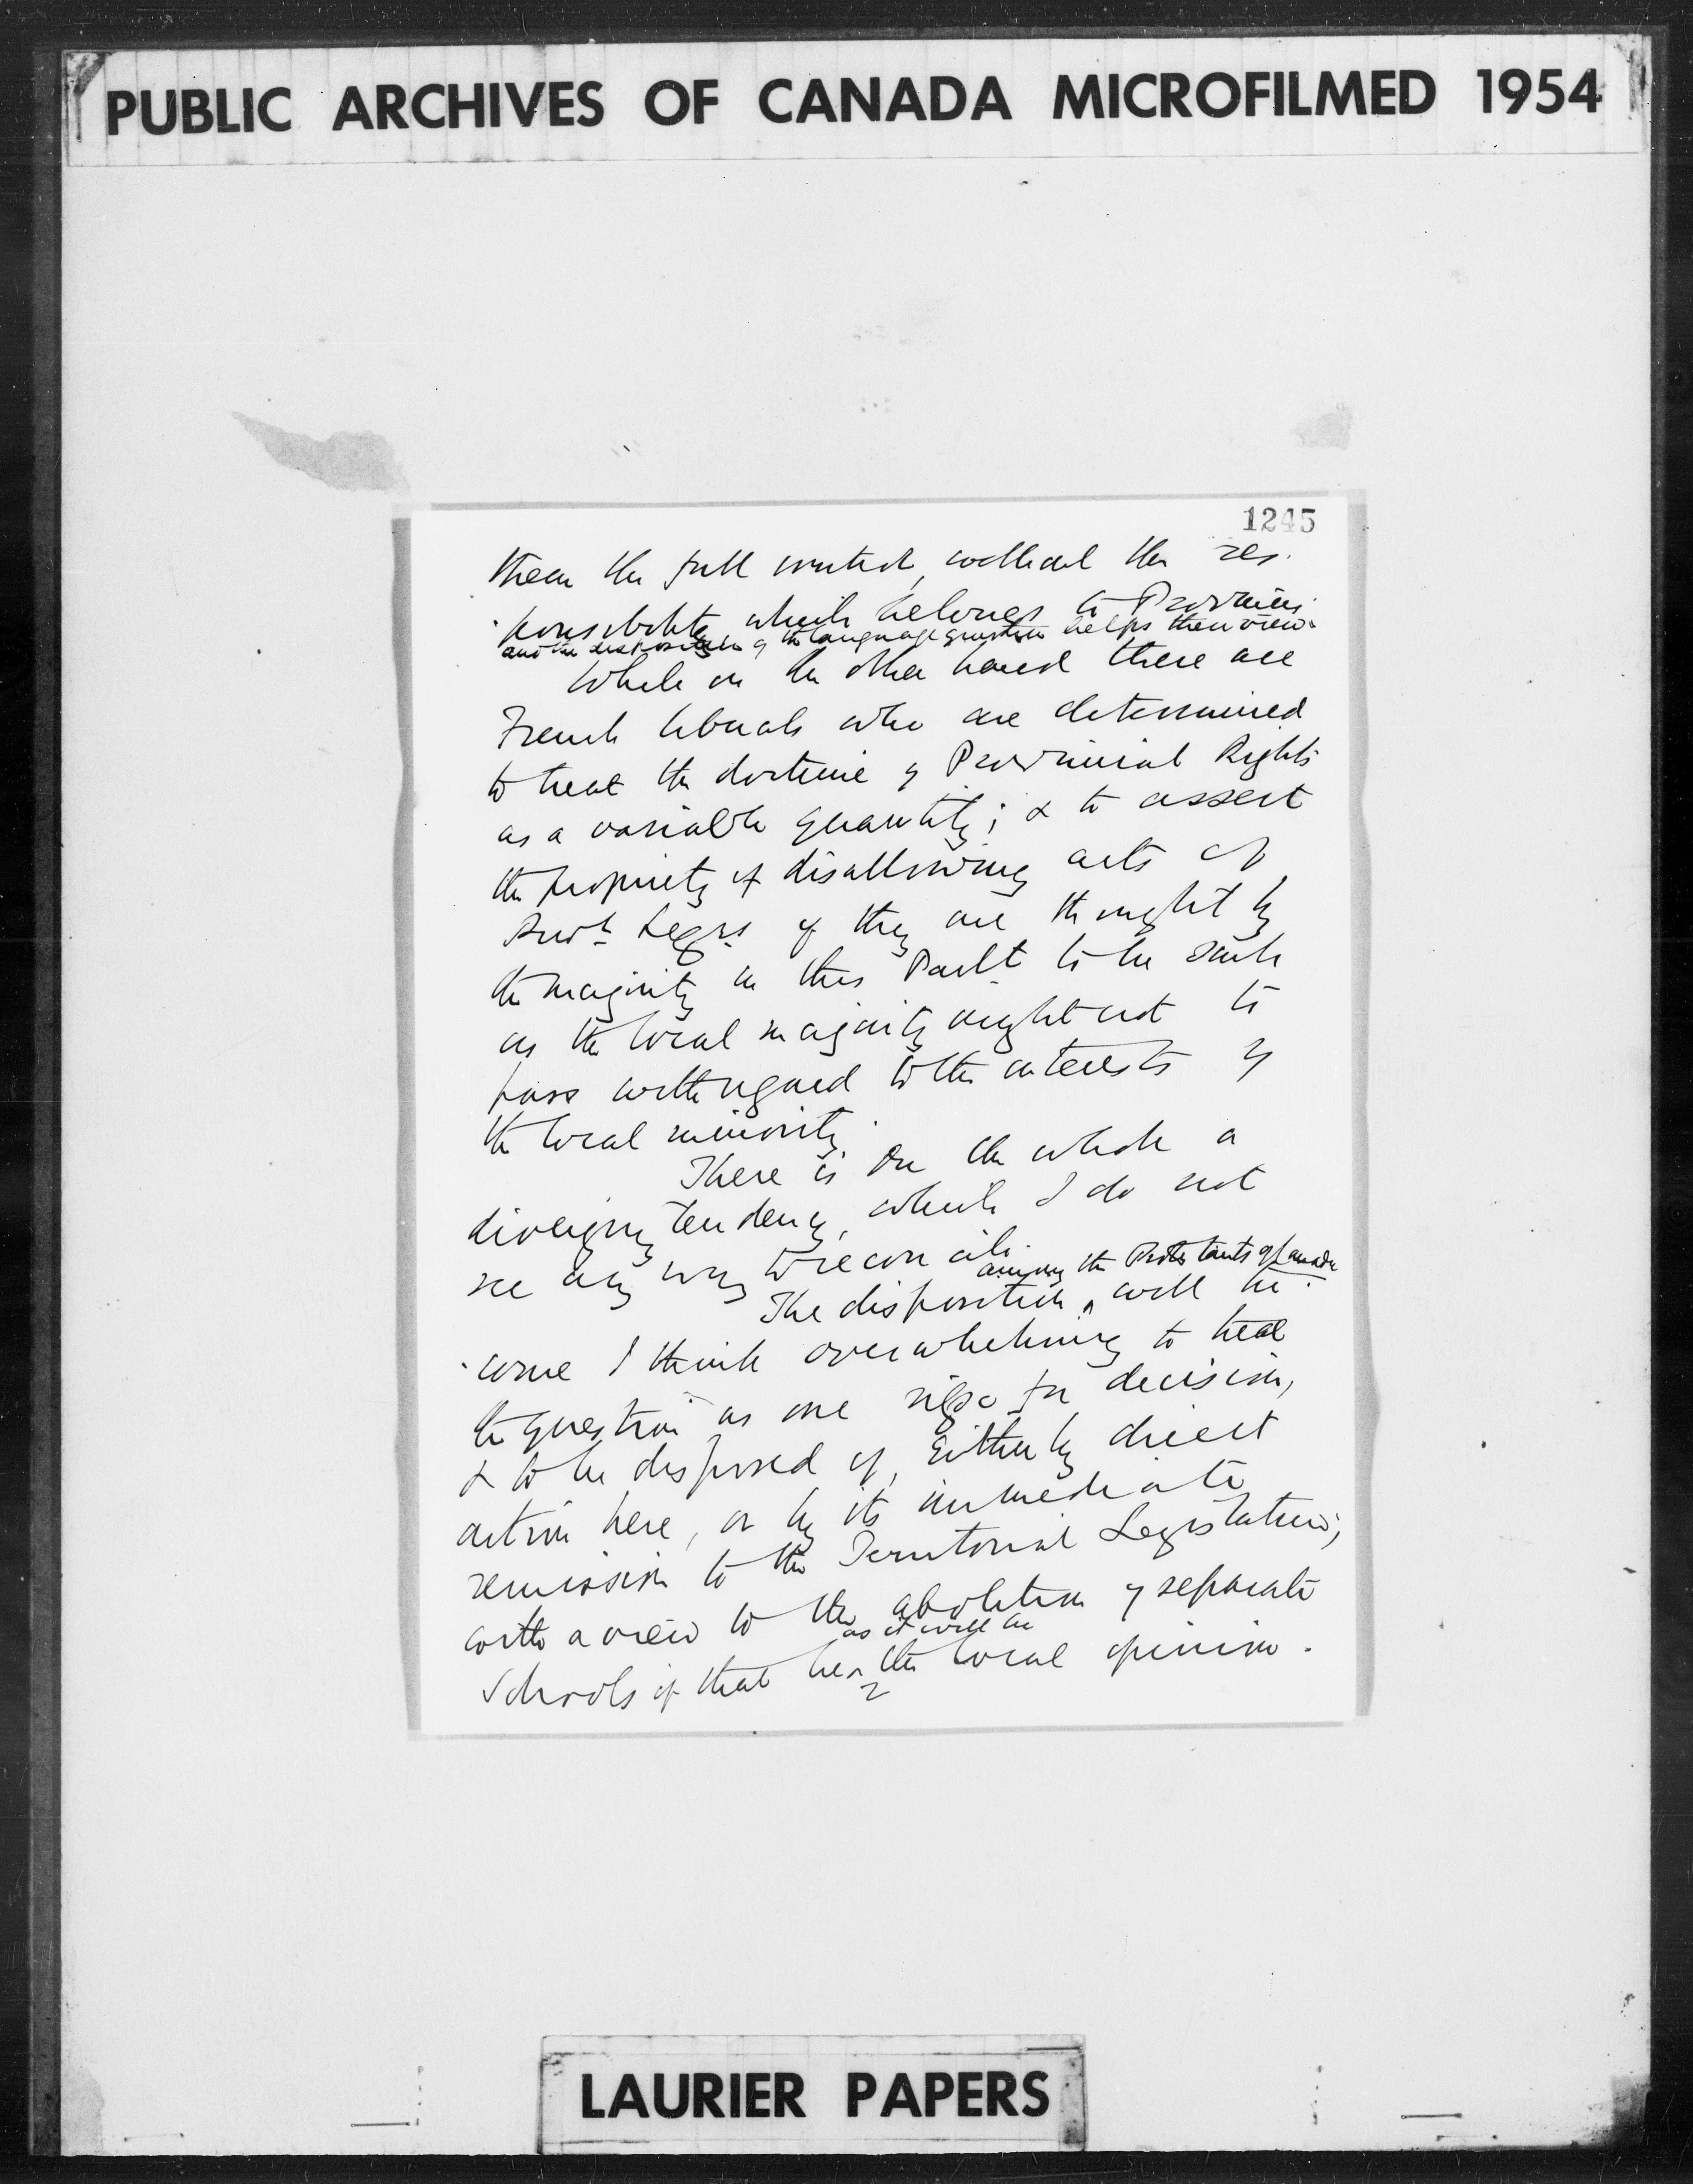 PUBLIC ARCHIVES OF CANADA MICROFILMED 1954
1245
them the full control, without the res-
ponsibility which belongs to Provinces
and the disposition of the language question helps their view.
While on the other hand there are
French liberals who are determined
to treat the doctrine of Provincial Rights
as a variable quantity; & to assert
the propriety of disallowing acts of
Legrs if they are thought by
the majority in this Parlt to be such
as the local majority ought not to
pass with regard to the interests of
the local minority.
There is on the whole a
diverging tendency, which I do not
see any way to reconcile.
among the Protestants of Canada
The disposition ^ will be-
come I think overwhelming to treat
the question as one ripe for decision,
& to be disposed of, either by direct
action here, or by its immediate
remission to the Territorial Legislature,
with a view to the abolition of separate
as it will be
Schools if that be ^ the local opinion.
LAURIER PAPERS